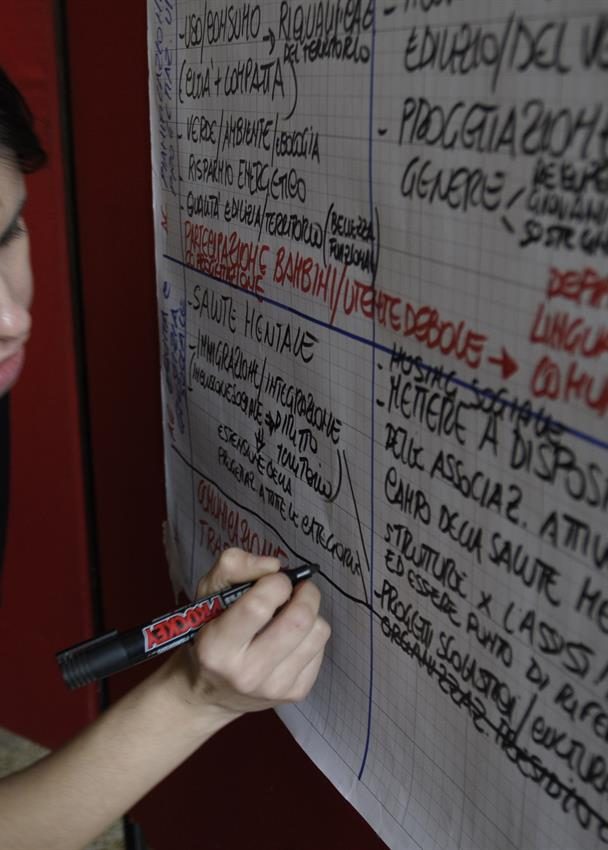 - USO/CONSUMO → RIQUALIFICAZ
DEL TERRITORIO
(CITTÀ + COMPATTA)
- VERDE/AMBIENTE/ECOLOGIA
RISPARMIO ENERGETICO
- QUALITÀ EDILIZIA/TERRITORIO (BELLEZZA
FUNZIONAL
PARTECIPAZIONE BAMBINI/UTENTE DEBOLE →
- SALUTE MENTALE
- IMMIGRAZIONE/INTEGRAZIONE
TUTTO
TERRITORIO)
ESTENSIONE DELLA
A TUTTE LE CATEGORIE
COMUNICAZIONE
TRA
EDILIZIO/DEL VE
- PROGETTAZIONE
GENERE
GIOVANI
SOSTEGN
DEFIN
LINGUA
COMUN
- HOUSING SOCIALE
- METTERE A DISPOSI
DELLE ASSOCIAZ. ATTIV
CAMPO DELLA SALUTE ME
STRUTTURE X L'ASSIST
ED ESSERE PUNTO DI RIFE
- PROGETTI SCOLASTICI/CULTUR
ORGANIZZAZ.
PROCKEY